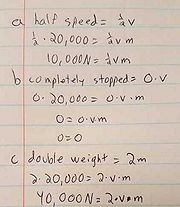 a half speed = ½v
½ · 20,000 = ½vm
10,000N = ½vm
b completely stopped = 0·v
0 · 20,000 = 0·v·m
0 = 0·vm
0=0
c double weight = 2m
2·20,000 = 2·v·m
40,000N = 2·v·m